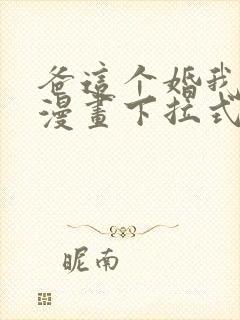 爸這个婚我
漫畫下拉式
昵南